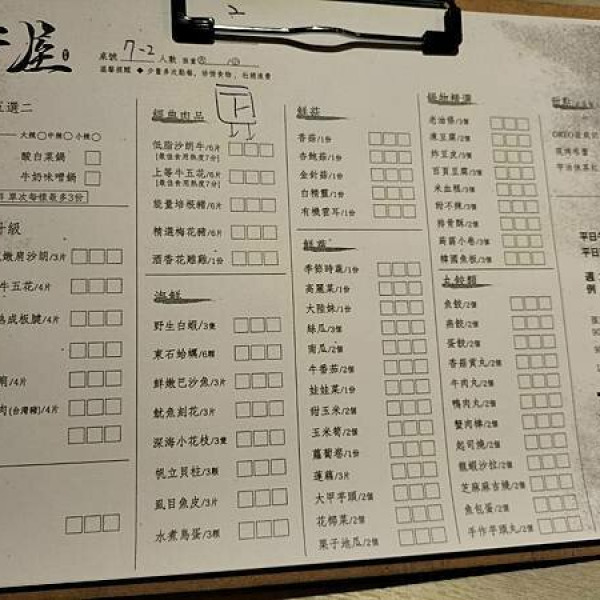 2
屋
桌號 7-2 人數
溫馨提醒 ◆ 少量多次點餐,珍惜食物,杜絕浪費
五選二
大辣 中辣 小辣
酸白菜鍋
牛奶味噌鍋
單次每樣最多3份
升級
嫩肩沙朗/3片
牛五花/4片
熟成板腱/4片
/4片
肉(台灣豬)/4片
經典肉品
下
低脂沙朗牛/6片
(最佳食用熟度7分)
上等牛五花/6片
(最佳食用熟度7分)
能量培根豬/6片
精選梅花豬/6片
酒香花雕雞/1份
海鮮
野生白蝦/3隻
東石蛤蠣/6顆
鮮嫩巴沙魚/3片
魷魚刻花/3片
深海小花枝/3隻
帆立貝柱/3顆
虱目魚皮/3片
水煮鳥蛋/3顆
鮮菇
香菇/1份
杏鮑菇/1份
金針菇/1份
白精靈/1份
有機雲耳/1份
鮮蔬
季節時蔬/1份
高麗菜/1份
大陸妹/1份
絲瓜/3個
南瓜/2個
牛番茄/2個
娃娃菜/1份
甜玉米/2個
玉米筍/2個
蘿蔔卷/1份
蓮藕/3片
大甲芋頭/2個
花椰菜/2個
栗子地瓜/2個
鍋物精選
老油條/3個
凍豆腐/2個
炸豆皮/3個
百頁豆腐/3個
米血糕/3個
甜不辣/3個
排骨酥/2個
蒟蒻小卷/3個
韓國魚板/3個
丸餃類
魚餃/2個
燕餃/2個
蛋餃/2個
香菇貢丸/2個
牛肉丸/2個
鴨肉丸/2個
蟹肉棒/2個
起司燒/2個
龍蝦沙拉/2個
芝麻麻吉燒/2個
魚包蛋/2個
手作芋頭丸/2個
平日
平日
週
例